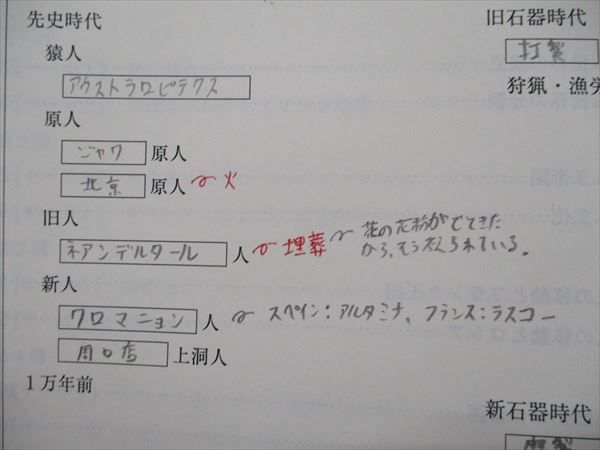 先史時代
猿人
アウストラロピテクス
原人
ジャワ 原人
北京 原人 火
旧人
ネアンデルタール 人 埋葬 花の花粉がでてきた
から、そう考えられている。
新人
クロマニョン 人 スペイン:アルタミナ、フランス:ラスコー
周口店 上洞人
1万年前
旧石器時代
打製
狩猟・漁労
新石器時代